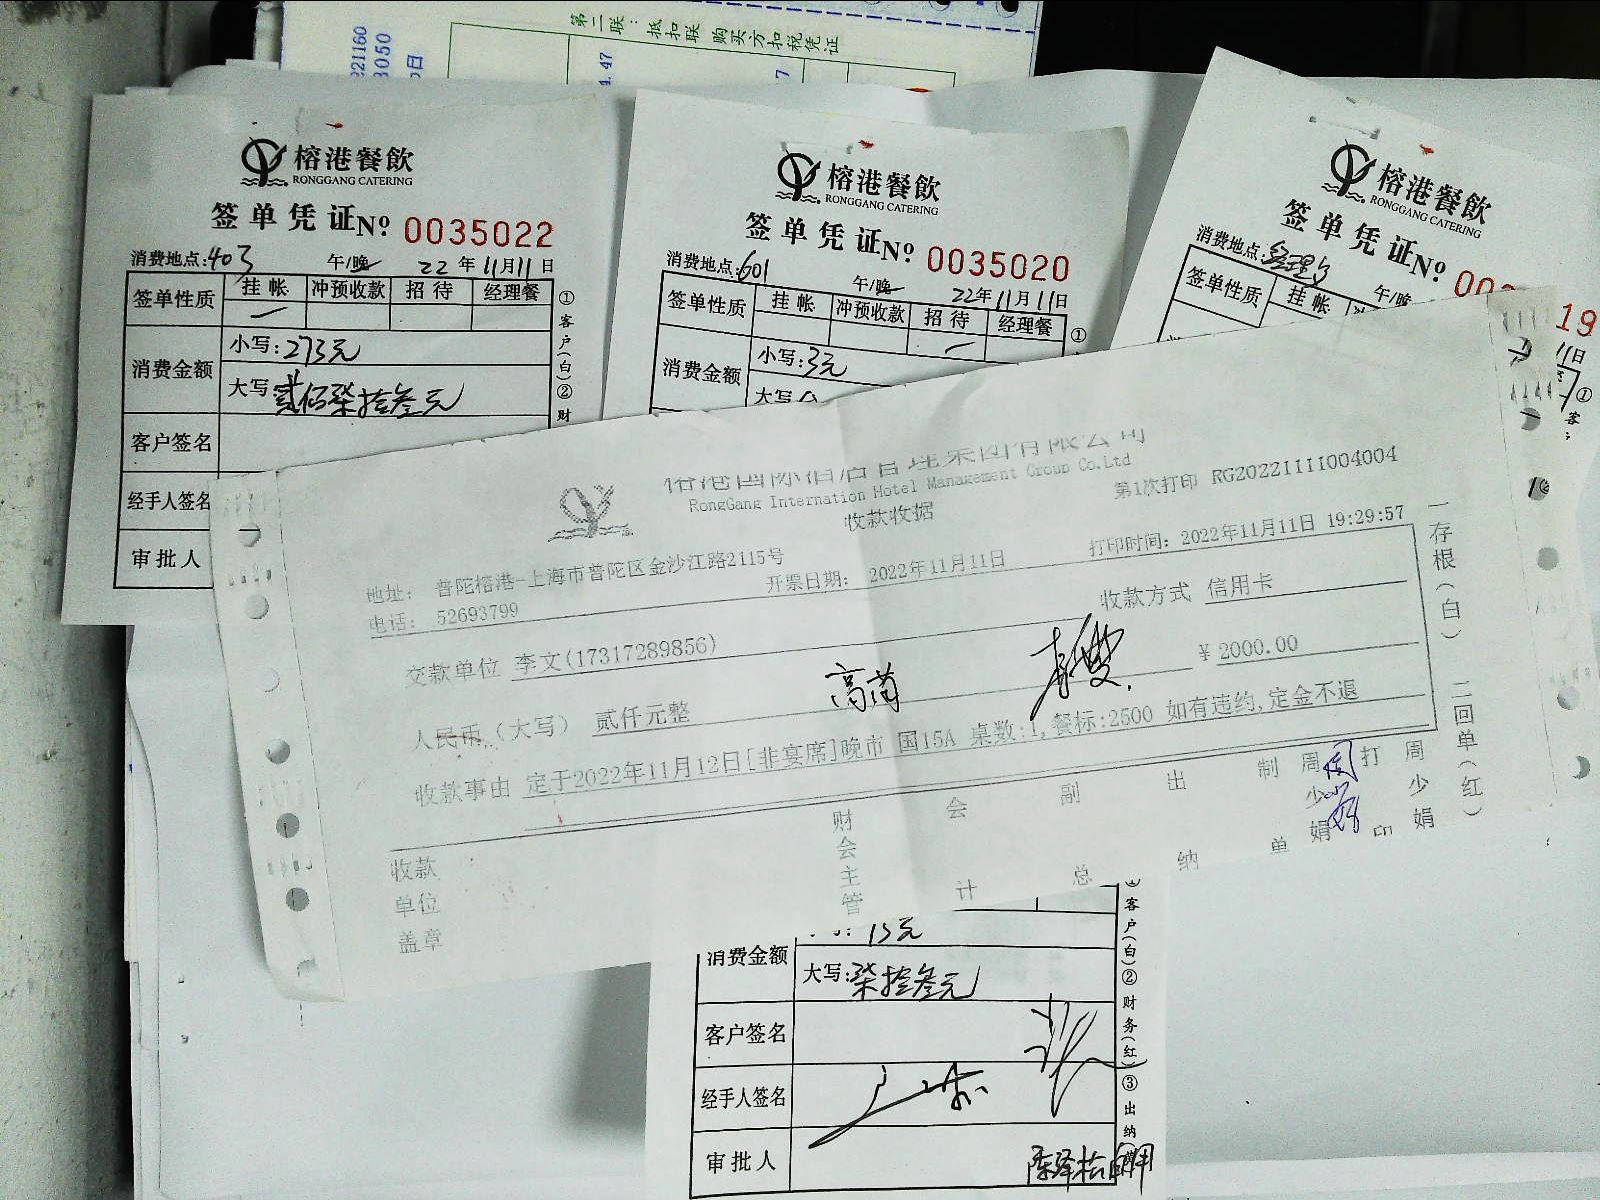 第二联：抵扣联 购买方扣税凭证
221160
3050
日
.47
7
榕港餐飲
RONGGANG CATERING
签单凭证No. 0035022
消费地点:403 午/晚 22年11月11日
签单性质 挂帐 冲预收款 招待 经理餐
消费金额 小写:273元
大写 贰佰柒拾叁元
客户签名
经手人签名
审批人
①客户(白)②财
榕港餐飲
RONGGANG CATERING
签单凭证No. 0035020
消费地点:601 午/晚 22年11月11日
签单性质 挂帐 冲预收款 招待 经理餐
消费金额 小写:3元
大写
①
榕港餐飲
RONGGANG CATERING
签单凭证No. 00 19
消费地点: 午/晚 11日
签单性质 挂帐
①客
榕港国际酒店管理集团有限公司
RongGang Internation Hotel Management Group Co.Ltd
收款收据
第1次打印 RG20221111004004
地址： 普陀榕港-上海市普陀区金沙江路2115号
电话： 52693799
开票日期： 2022年11月11日
打印时间： 2022年11月11日 19:29:57
交款单位 李文(17317289856)
收款方式 信用卡
人民币（大写） 贰仟元整
¥ 2000.00
收款事由 定于2022年11月12日[非宴席]晚市 国15A 桌数:1,餐标:2500 如有违约,定金不退
收款单位盖章
财会主管
会计
副总
出纳
制单
周少娟
打印
周少娟
一存根(白) 二回单(红)
消费金额
大写:柒拾叁元
客户签名
经手人签名
审批人
客户(白)②财务(红)③出纳